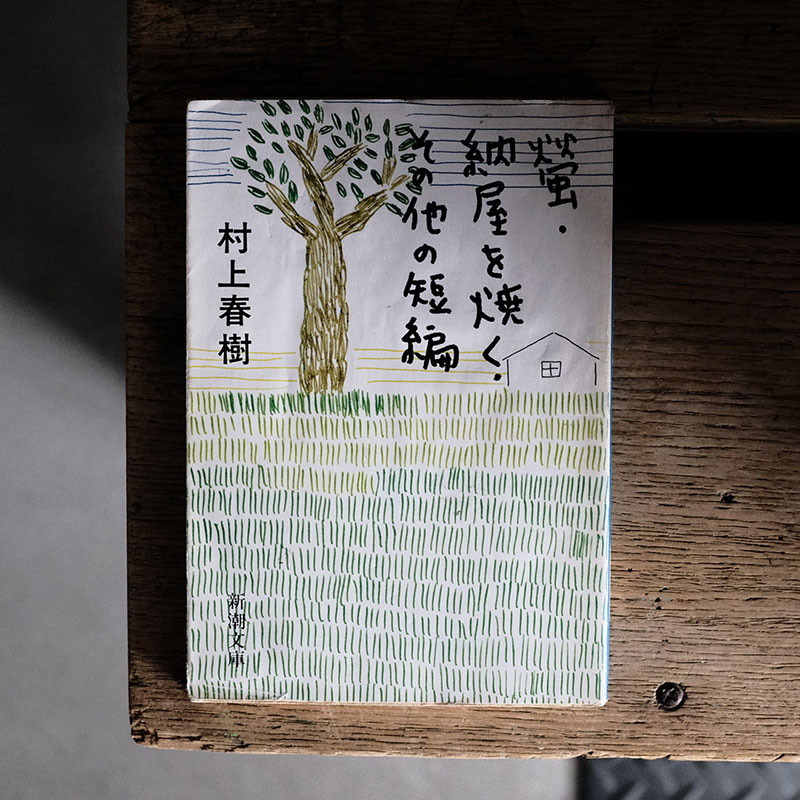 螢・
納屋を焼く・
その他の短編
村上春樹
新潮文庫